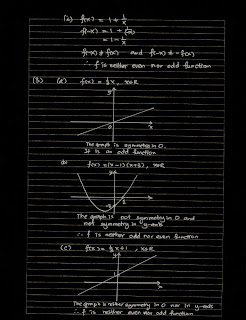 (2) f(x) = 1 + 1/x
f(-x) = 1 + 1/(-x)
= 1 - 1/x
f(-x) ≠ f(x) and f(-x) ≠ -f(x)
∴ f is neither even nor odd function
(3) (a) f(x) = ½x, x∈R
y
0
x
The graph is symmetry in O.
It is an odd function
(b) f(x) = (x-1)(x+3), x∈R
y
x
The graph is not symmetry in O and
not symmetry in y-axis
∴ f is neither odd nor even function
(c) f(x) = ½x+1, x∈R
y
1
x
The graph is neither symmetry in O nor in y-axis
∴ f is neither even nor odd function